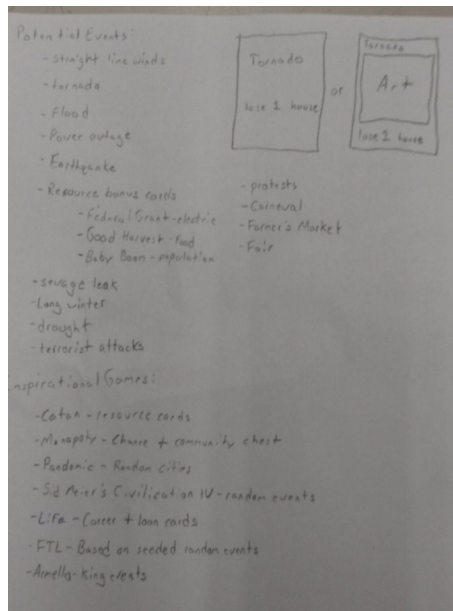 Potential Events:
- straight line winds
- tornado
- Flood
- Power outage
- Earthquake
- Resource bonus cards
- Federal Grant - electric
- Good Harvest - food
- Baby Boom - population
- sewage leak
- Long winter
- drought
- terrorist attacks
Tornado
lose 1 house
or
Tornado
Art
lose 1 house
- protests
- Carneval
- Farmer's Market
- Fair
Inspirational Games:
- Catan - resource cards
- Monopoly - Chance + community chest
- Pandemic - Random cities
- Sid Meier's Civilization IV - random events
- Life - Career + loan cards
- FTL - Based on seeded random events
- Armello - King events